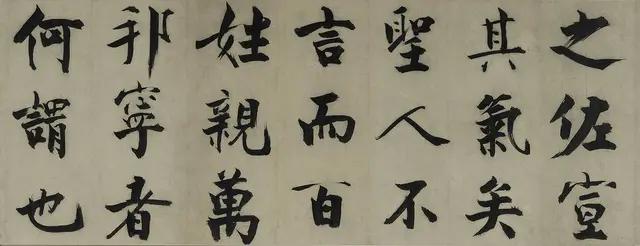 之佐宣
其氣矣
聖人不
言而百
姓親萬
邦寧者
何謂也